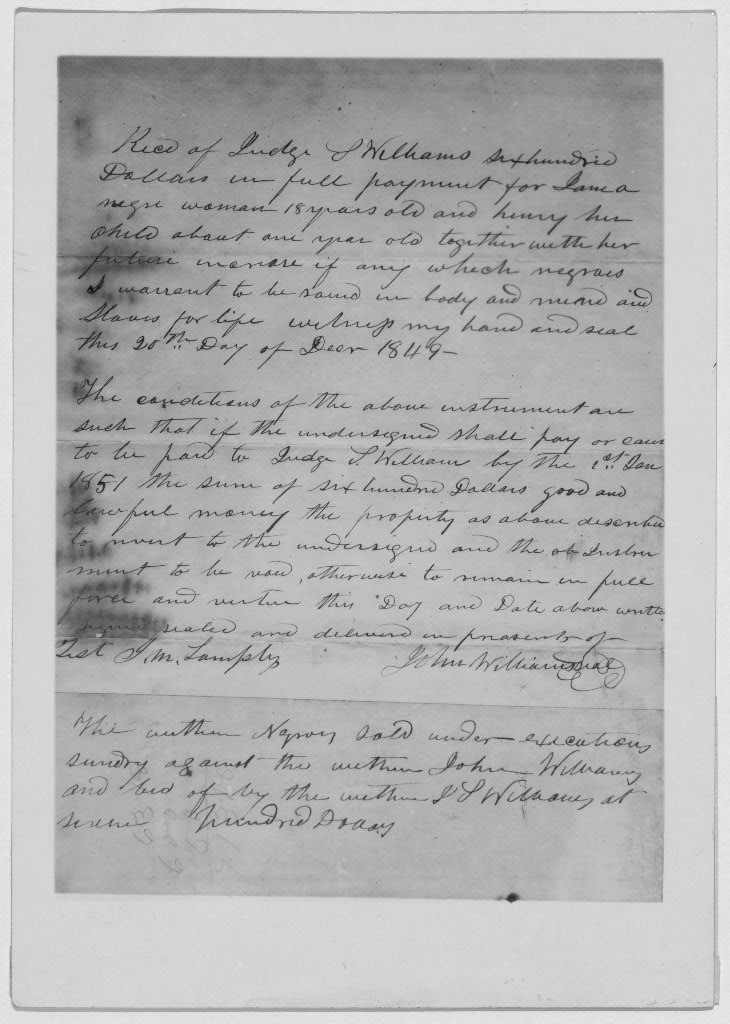 Recd of Judge S Williams six hundred
Dollars in full payment for Jane a
negro woman 18 years old and henry her
Child about one year old together with her
future increase if any which negroes
I warrant to be sound in body and mind and
Slaves for life witness my hand and seal
this 20th Day of Decr 1849-
The conditions of the above instrument are
such that if the undersigned shall pay or caus
to be paid to Judge S. William by the 1st Jan
1851 the sum of six hundred Dollars good and
lawful money the property as above describe
to revert to the undersigned and the ab Instru
ment to be void, otherwise to remain in full
force and virtue this Day and Date above writte
signed sealed and delivered in presents of
Test J. M. Lamply John Williams seal
The within Negroes sold under executions
sundry against the within John Williams
and bid of by the within J S Williams at
seven hundred Dollars